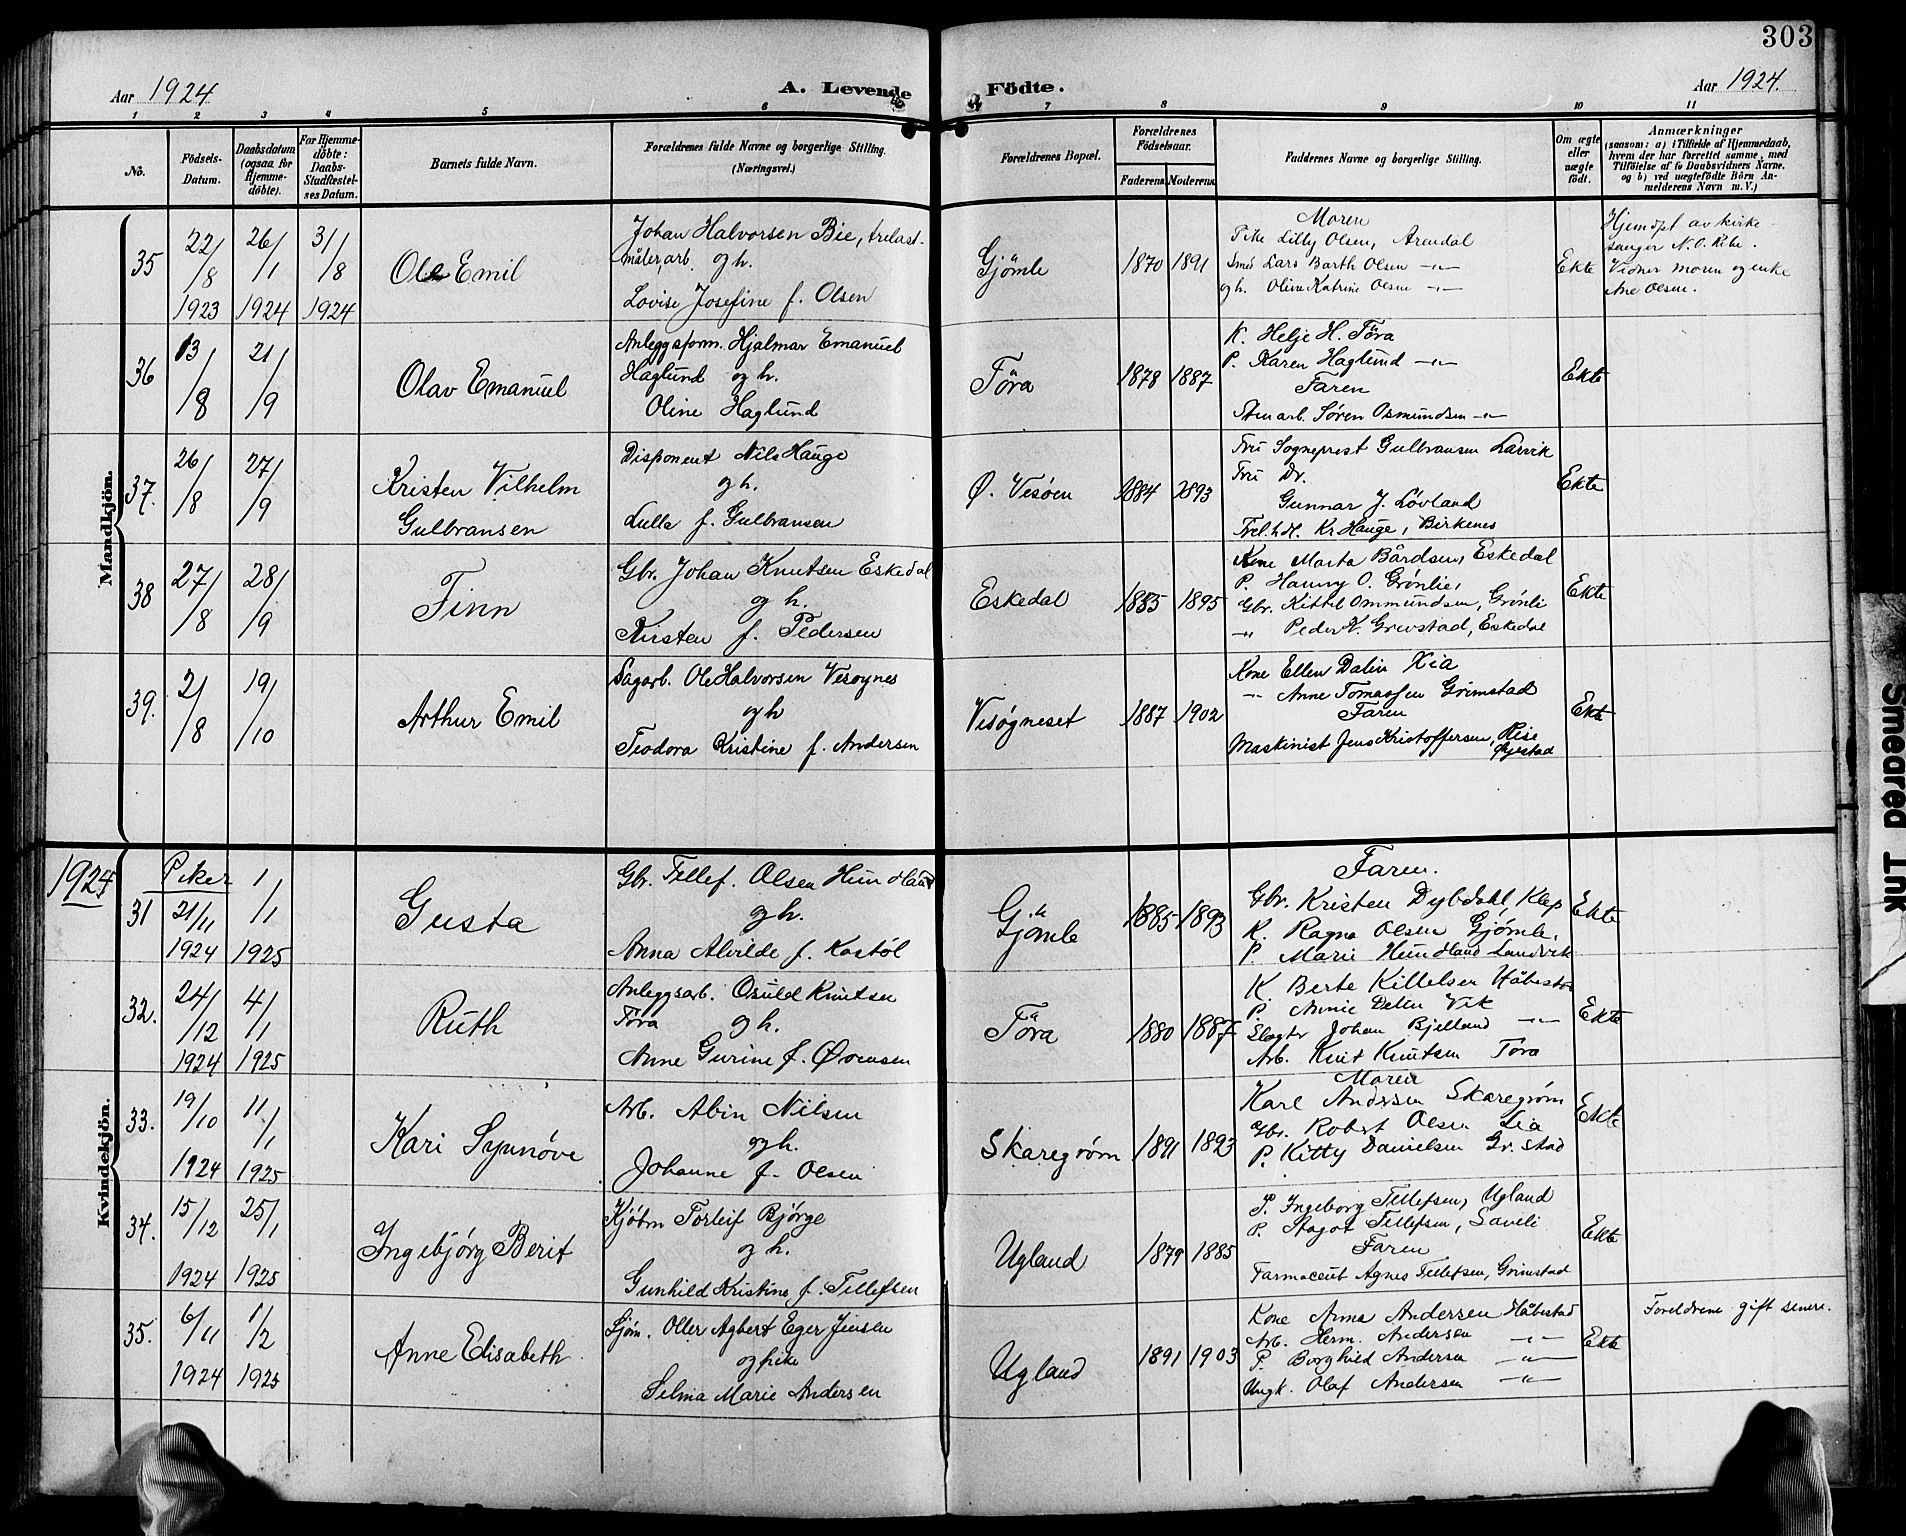 303
Aar 1924
A. Levende
Födte.
Aar 1924.
1 2 3 4 5 6 7 8 9 10 11
No.
Födsels-
Datum.
Daabsdatum
(ogsaa for
Hjemme-
döbte).
For Hjemme-
döbte:
Daabs-
Stadfæstel-
ses Datum.
Barnets fulde Navn.
Forældrenes fulde Navne og borgerlige Stilling.
(Næringsvei.)
Forældrenes Bopæl.
Forældrenes
Födselsaar.
Faderens.
Moderens.
Faddernes Navne og borgerlige Stilling.
Om ægte
eller
uægte
födt.
Anmærkninger
(saasom: a) i Tilfælde af Hjemmedaab,
hvem der har forrettet samme, med
Tilföielse af to Daabsvidners Navne.
og b) ved uægtefödte Börn An-
melderens Navn m. V.)
Mandkjön.
35
22/8 1923
26/1 1924
31/8 1924
Ole Emil
Johan Halvorsen Bie, trelast-
måler, arb. og h.
Lovise Josefine f. Olsen
Gjømle
1870
1891
Moren
Pike Lilly Olsen, Arendal
Smed Lars Barth Olsen -"-
og h. Oline Katrine Olsen -"-
Ekte
Hjemdpt av kirke-
sanger N. O. Ribe.
Vidner moren og enke
Ane Olsen.
36
13/8
21/9
Olav Emanuel
Anleggsform. Hjalmar Emanuel
Haglund og h.
Oline Haglund
Töra
1878
1887
K. Helje H. Töra
P. Karen Haglund -"-
Faren
Stenarb. Søren Osmundsen -"-
Ekte
37.
26/8
27/9
Kristen Vilhelm
Gulbransen
Disponent Nils Hauge
og h.
Lulla f. Gulbransen
Ø. Vesøen
1884
1893
Fru Sogneprest Gulbransen Larvik
Fru Dr.
Gunnar J. Løvland
Trel.h.H. Kr. Hauge, Birkenes
Ekte
38
27/8
28/9
Finn
Gbr. Johan Knutsen Eskedal
og h.
Kirsten f. Pedersen
Eskedal
1885
1895
Kone Marta Bårdsen, Eskedal
P. Hanny O. Grønlie,
Gbr. Kittel Ommundsen, Grønli
-"- Peder K. Grevstad, Eskedal
Ekte
39.
2/8
19/10
Arthur Emil
Sagarb. Ole Halvorsen Vesøynes
og h
Teodora Kristine f. Andersen
Vesøgneset
1887
1902
Kone Ellen Dalin Kia
-"- Anne Tomassen Grimstad
Faren
Maskinist Jens Kristoffersen, Rise
Øyestad
Ekte
Kvindekjön.
1924
Piker
31
21/11 1924
1/1 1925
Gusta
Gbr. Tellef. Olsen Hundland
og h.
Anna Alvilde f. Kastöl
Gjømle
1885
1893
Faren.
Gbr. Kristen Dybdahl, Klep
K. Ragna Olsen Gjømle.
P. Marie Hundland Landvik
Ekte
32.
24/12 1924
4/1 1925
Ruth
Anleggsarb. Osuld Knutsen
Töra og h.
Anne Gurine f. Øvensen
Töra
1880
1887
K. Berte Killelsen Håbestad
P. Annie Delin Vik
Slagter Johan Bjelland -"-
Arb. Knut Knutsen Tøra
Ekte
33.
19/10 1924
11/1 1925
Kari Synnøve
Arb. Abin Nilsen
og h.
Johanne f. Olsen
Skaregrøm
1891
1893
Moren
Karl Andersen Skaregrøm
Gbr. Robert Olsen Lia
P. Kitty Danielsen Gr.stad
Ekte
34.
15/12 1924
25/1 1925
Ingebjørg Berit
Kjøbm Torleif Bjørge
og h.
Gunhild Kristine f. Tellefsen
Ugland
1879
1885
P. Ingeborg Tellefsen, Ugland
P. Magot Tellefsen, Saveli
Faren
Farmaceut Agnes Tellefsen, Grimstad
Ekte
35.
6/11 1924
1/2 1925
Anne Elisabeth
Sjøm. Oller Agbert Eger Jensen
og pike
Selma Marie Andersen
Ugland
1891
1903
Kone Anna Andersen Håbestad
Arb. Herm. Andersen -"-
P. Borghild Andersen -"-
Ungk. Olaf Andersen -"-
Ekte
Foreldrene gift senere.
Smeared Ink